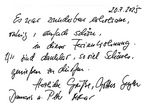 20.7.2025
Es war wunderbar erholsam,
ruhig, einfach schön,
in dieser Ferienwohnung.
Wir sind dankbar, so viel Schönes
genießen zu dürfen.
Herzliche Grüße,
und Peter